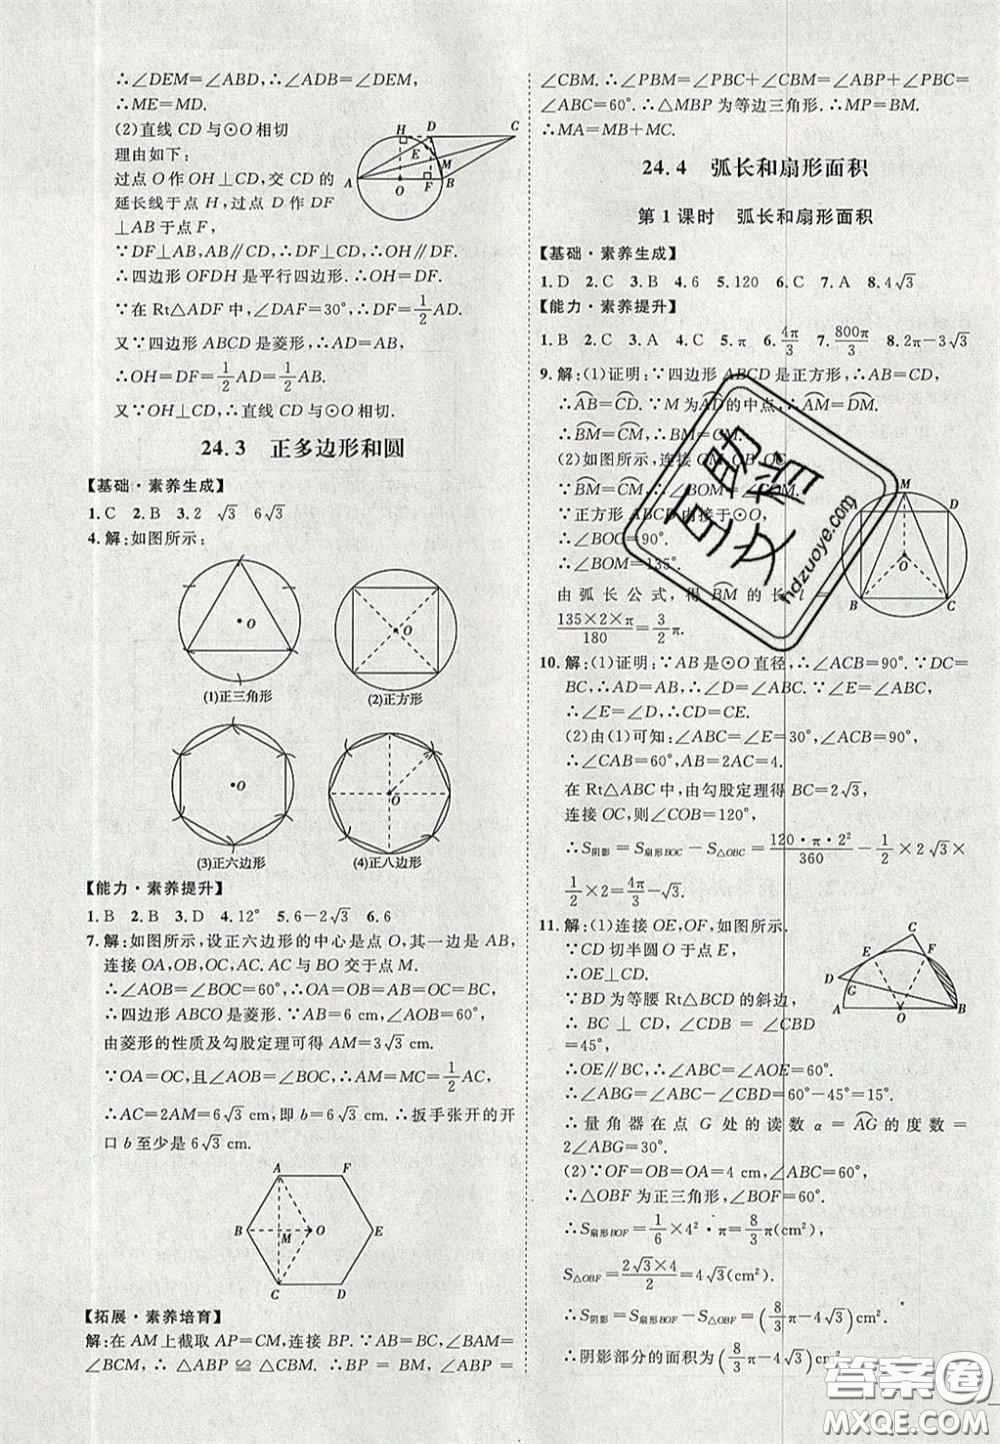 ∴∠DEM=∠ABD,∴∠ADB=∠DEM,
∴ME=MD.
(2)直线 CD 与⊙O相切
理由如下:
过点 O 作 OH⊥CD,交 CD 的
延长线于点 H,过点 D 作 DF
⊥AB 于点 F,
∵DF⊥AB,AB∥CD,∴OH∥DF,
∴四边形 OFDH 是平行四边形.∴OH=DF.
∵在 Rt△ADF 中,∠DAF=30°,∴DF=1/2AD.
又∵四边形 ABCD 是菱形,
∴OH=DF=1/2AD=1/2AB.
又∵OH⊥CD,∴直线 CD 与⊙O 相切.
H D C E M A O F B
24.3 正多边形和圆
【基础·素养生成】
1.C 2.B 3.2 √3 6√3
4.解:如图所示:
O
O
(1)正三角形 (2)正方形
O
O
(3)正六边形 (4)正八边形
【能力·素养提升】
1.B 2.B 3.D 4.12° 5.6-2√3 6.6
7.解:如图所示,设正六边形的中心是点 O,其一边是 AB,
连接 OA,OB,OC,AC 与 BO 交于点 M.
∴∠AOB=∠BOC=60°,∴OA=OB=AB=OC=BC,
∴四边形 ABCO 是菱形.∵AB=6 cm,∠AOB=60°,
由菱形的性质及勾股定理可得 AM=3√3 cm.
∵OA=OC,且∠AOB=∠BOC,∴AM=MC=1/2AC,
∴AC=2AM=6√3 cm,即 b=6√3 cm.∴扳手张开的开
口 b 至少是 6√3 cm.
A F B M O E C D
【拓展·素养培育】
解:在 AM 上截取 AP=CM,连接 BP. ∵AB=BC,∠BAM=
∠BCM,∴△ABP≌△CBM.∴BP=BM,∠ABP=
∠CBM.∴∠PBM=∠PBC+∠CBM=∠ABP+∠PBC=
∠ABC=60°.∴△MBP为等边三角形.∴MP=BM.
∴MA=MB+MC.
24.4 弧长和扇形面积
第1课时 弧长和扇形面积
【基础·素养生成】
1.D 2.C 3.B 4.6 5.120 6.C 7.A 8.4√3
【能力·素养提升】
1.B 2.C 3.A 4.C 5.π 6.4π/3 7.800π/3 8.2π-3√3
9.解:(1)证明:∵四边形 ABCD 是正方形,∴AB=CD,
∴AB=CD.∵M 为AD的中点,∴AM=DM.
∴BM=CM,∴BM=CM.
(2)如图所示,连接 OM,OB,OC.
∵BM=CM,∴∠BOM=∠COM.
∵正方形 ABCD 内接于⊙O,
∴∠BOC=90°.
∴∠BOM=135°.
由弧长公式,得BM的长 l=
135×2×π/180=3/2π.
M A D O B C
10.解:(1)证明:∵AB是⊙O直径,∴∠ACB=90°.∵DC=
BC,∴AD=AB,∴∠D=∠ABC.∵∠E=∠ABC,
∴∠E=∠D,∴CD=CE.
(2)由(1)可知:∠ABC=∠E=30°,∠ACB=90°,
∴∠CAB=60°,AB=2AC=4.
在 Rt△ABC 中,由勾股定理得 BC=2√3,
连接 OC,则∠COB=120°.
∴S阴影=S扇形BOC-S△OBC=120·π·2²/360-1/2×2√3×
1/2×2=4π/3-√3.
11.解:(1)连接 OE,OF,如图所示.
∵CD 切半圆O于点 E,
∴OE⊥CD.
∵BD 为等腰 Rt△BCD 的斜边,
∴BC⊥CD,∠CDB=∠CBD
=45°,
∴OE∥BC,∴∠ABC=∠AOE=60°.
∴∠ABG=∠ABC-∠CBD=60°-45°=15°.
∴量角器在点 G 处的读数 α=AG的度数=
2∠ABG=30°.
C E F D G A O B
(2)∵OF=OB=OA=4 cm,∠ABC=60°,
∴△OBF 为正三角形,∠BOF=60°.
∴S扇形BOF=1/6×4²·π=8/3π(cm²),
S△OBF=2√3×4/2=4√3(cm²).
∴S阴影=S扇形BOF-S△OBF=(8/3π-4√3)(cm²),
∴阴影部分的面积为(8/3π-4√3)cm².
互助文档
hdzuoye.com
答案圈
MXQE.COM